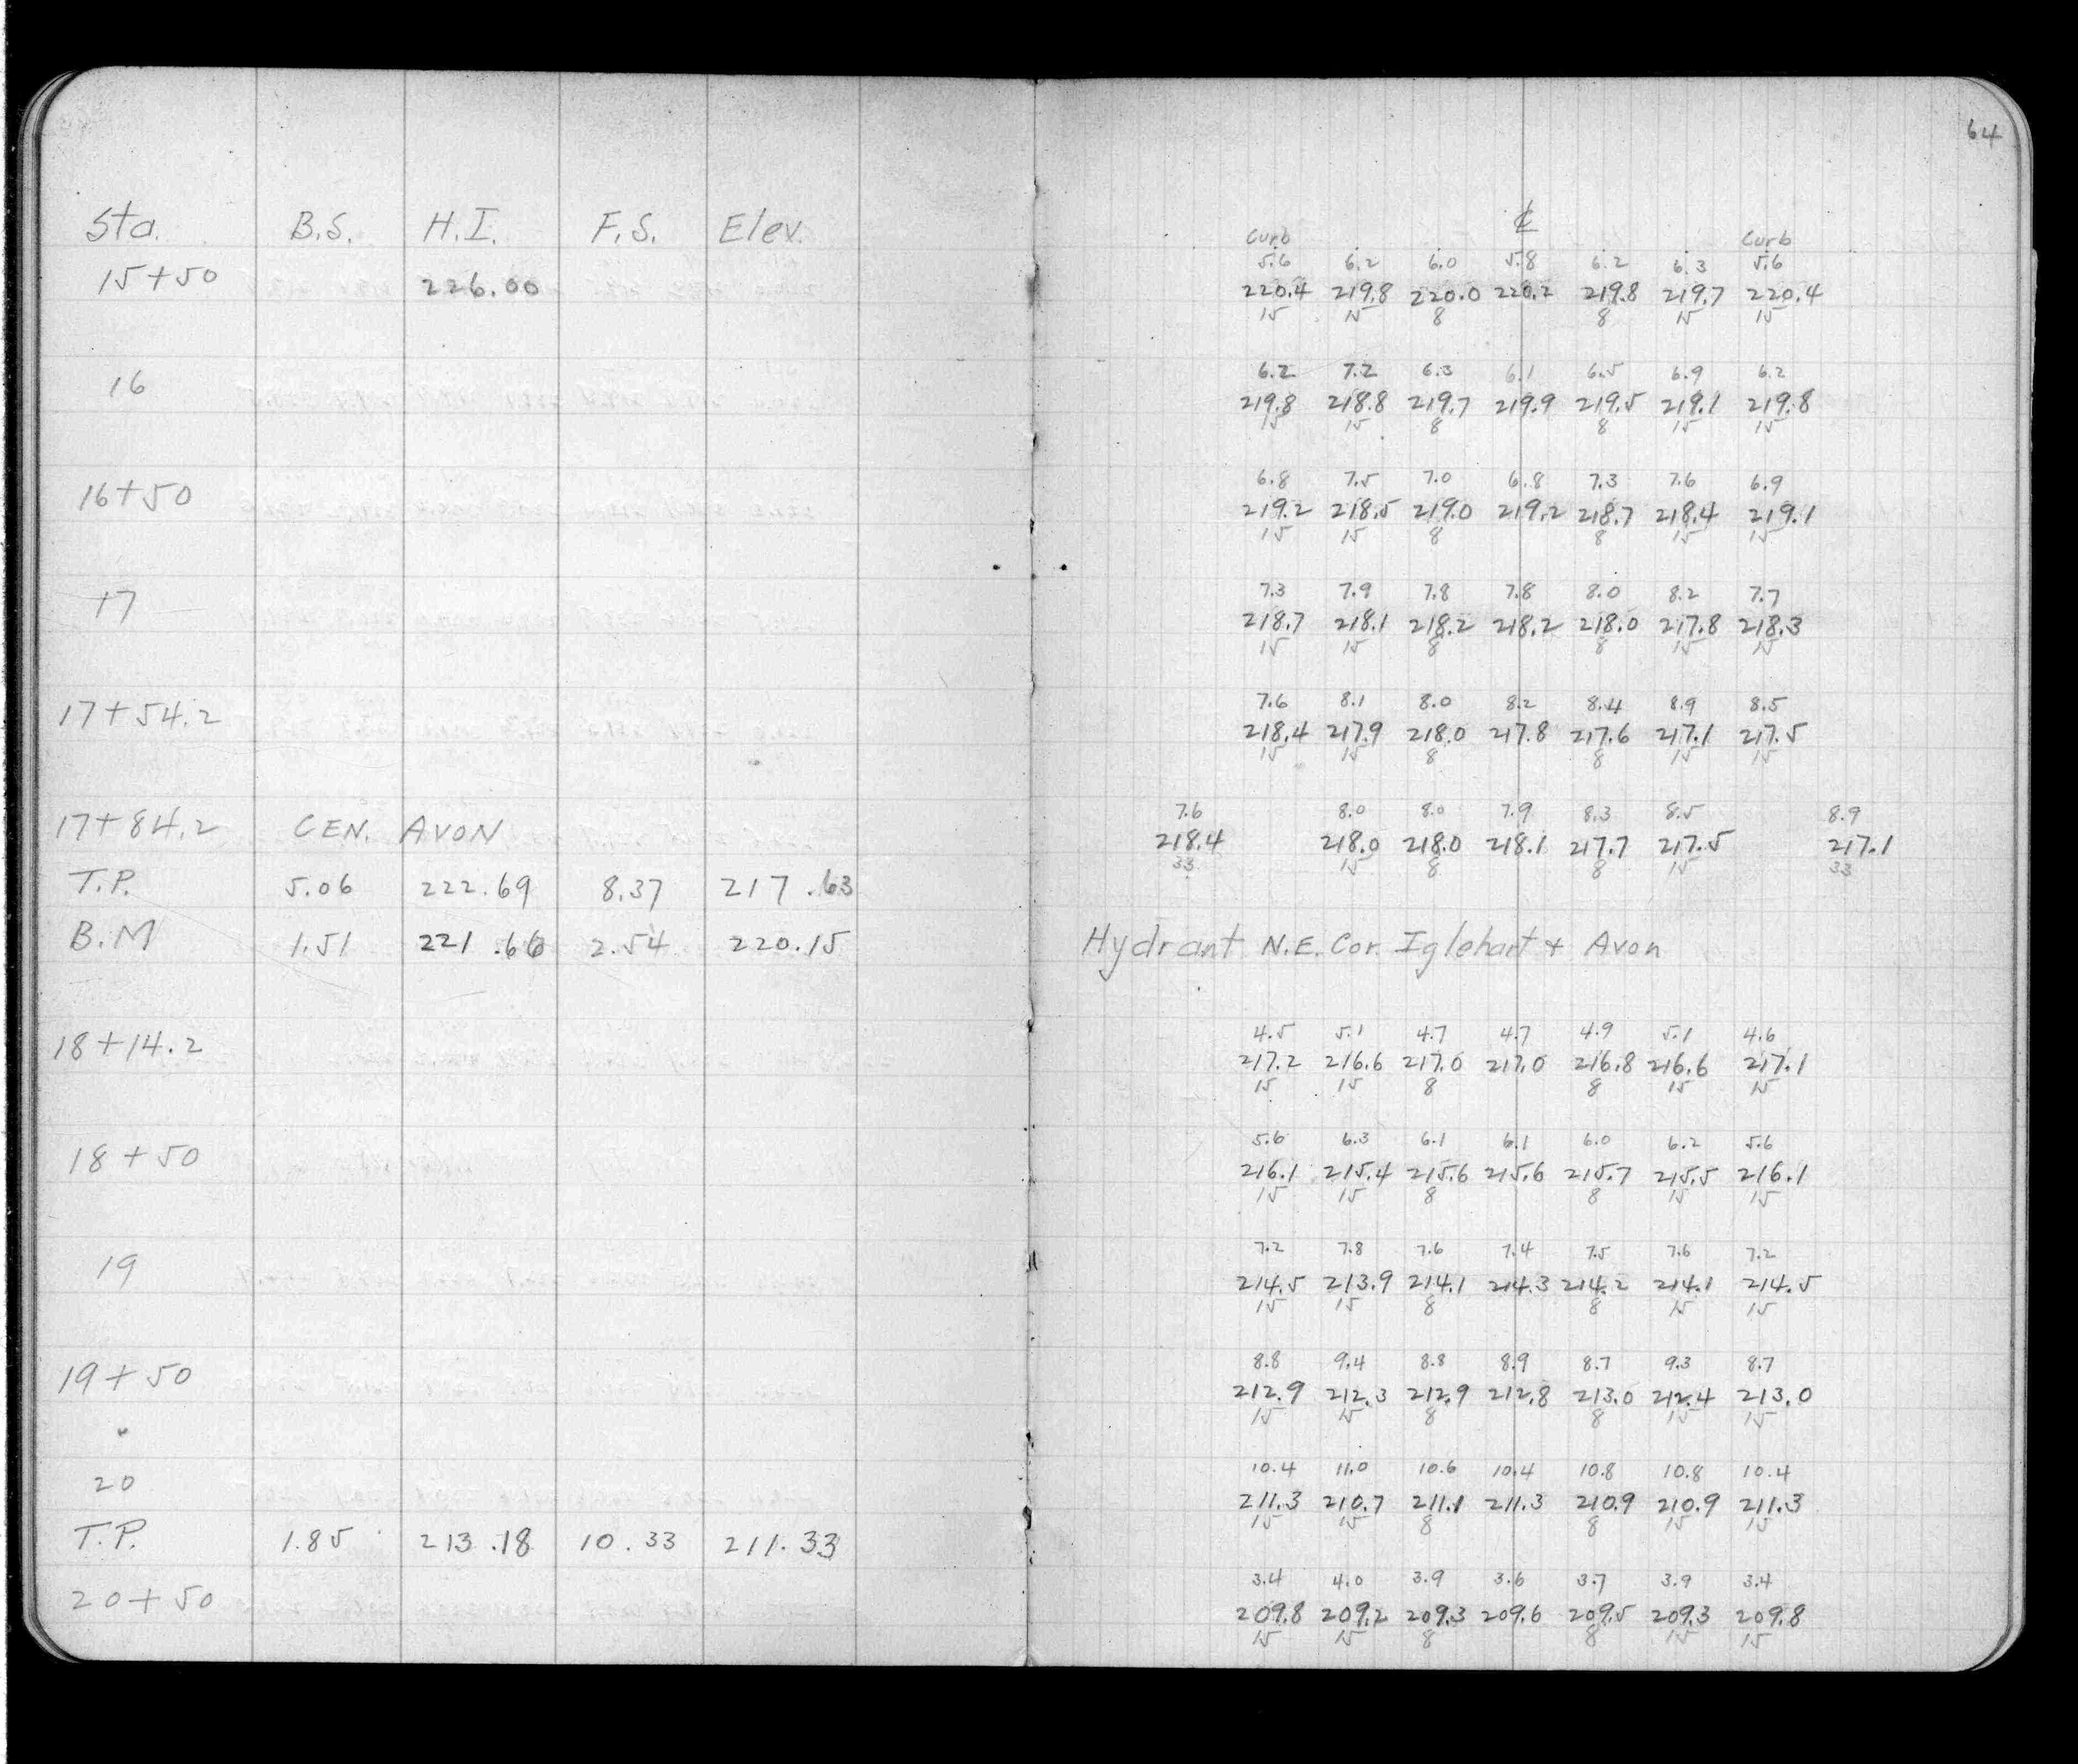 64
Sta. B.S. H.I. F.S. Elev. ℄
Curb Curb
5.6 6.2 6.0 5.8 6.2 6.3 5.6
15+50 226.00 220.4 219.8 220.0 220.2 219.8 219.7 220.4
15 15 8 8 15 15
6.2 7.2 6.3 6.1 6.5 6.9 6.2
16 219.8 218.8 219.7 219.9 219.5 219.1 219.8
15 15 8 8 15 15
6.8 7.5 7.0 6.8 7.3 7.6 6.9
16+50 219.2 218.5 219.0 219.2 218.7 218.4 219.1
15 15 8 8 15 15
7.3 7.9 7.8 7.8 8.0 8.2 7.7
17 218.7 218.1 218.2 218.2 218.0 217.8 218.3
15 15 8 8 15 15
7.6 8.1 8.0 8.2 8.4 8.9 8.5
17+54.2 218.4 217.9 218.0 217.8 217.6 217.1 217.5
15 15 8 8 15 15
7.6 8.0 8.0 7.9 8.3 8.5 8.9
17+84.2 CEN. AVON 218.4 218.0 218.0 218.1 217.7 217.5 217.1
33 15 8 8 15 33
T.P. 5.06 222.69 8.37 217.63
B.M 1.51 221.66 2.54 220.15 Hydrant N.E. Cor. Iglehart + Avon
4.5 5.1 4.7 4.7 4.9 5.1 4.6
18+14.2 217.2 216.6 217.0 217.0 216.8 216.6 217.1
15 15 8 8 15 15
5.6 6.3 6.1 6.1 6.0 6.2 5.6
18+50 216.1 215.4 215.6 215.6 215.7 215.5 216.1
15 15 8 8 15 15
7.2 7.8 7.6 7.4 7.5 7.6 7.2
19 214.5 213.9 214.1 214.3 214.2 214.1 214.5
15 15 8 8 15 15
8.8 9.4 8.8 8.9 8.7 9.3 8.7
19+50 212.9 212.3 212.9 212.8 213.0 212.4 213.0
15 15 8 8 15 15
10.4 11.0 10.6 10.4 10.8 10.8 10.4
20 211.3 210.7 211.1 211.3 210.9 210.9 211.3
15 15 8 8 15 15
T.P. 1.85 213.18 10.33 211.33
3.4 4.0 3.9 3.6 3.7 3.9 3.4
20+50 209.8 209.2 209.3 209.6 209.5 209.3 209.8
15 15 8 8 15 15